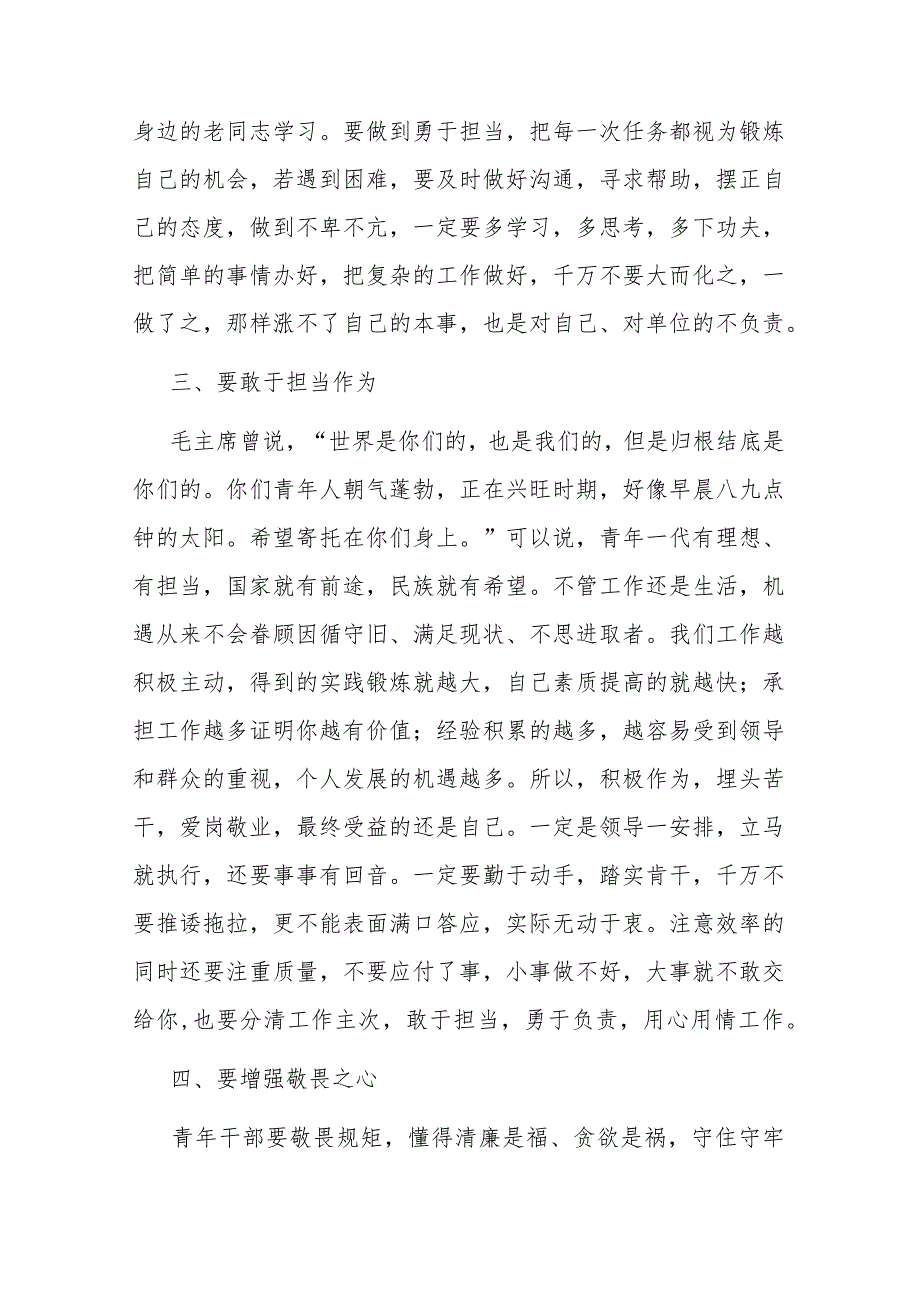 身边的老同志学习。要做到勇于担当，把每一次任务都视为锻炼
自己的机会，若遇到困难，要及时做好沟通，寻求帮助，摆正自
己的态度，做到不卑不亢，一定要多学习，多思考，多下功夫，
把简单的事情办好，把复杂的工作做好，千万不要大而化之，一
做了之，那样涨不了自己的本事，也是对自己、对单位的不负责。
三、要敢于担当作为
毛主席曾说，“世界是你们的，也是我们的，但是归根结底是
你们的。你们青年人朝气蓬勃，正在兴旺时期，好像早晨八九点
钟的太阳。希望寄托在你们身上。”可以说，青年一代有理想、
有担当，国家就有前途，民族就有希望。不管工作还是生活，机
遇从来不会眷顾因循守旧、满足现状、不思进取者。我们工作越
积极主动，得到的实践锻炼就越大，自己素质提高的就越快；承
担工作越多证明你越有价值；经验积累的越多，越容易受到领导
和群众的重视，个人发展的机遇越多。所以，积极作为，埋头苦
干，爱岗敬业，最终受益的还是自己。一定是领导一安排，立马
就执行，还要事事有回音。一定要勤于动手，踏实肯干，千万不
要推诿拖拉，更不能表面满口答应，实际无动于衷。注意效率的
同时还要注重质量，不要应付了事，小事做不好，大事就不敢交
给你,也要分清工作主次，敢于担当，勇于负责，用心用情工作。
四、要增强敬畏之心
青年干部要敬畏规矩，懂得清廉是福、贪欲是祸，守住守牢